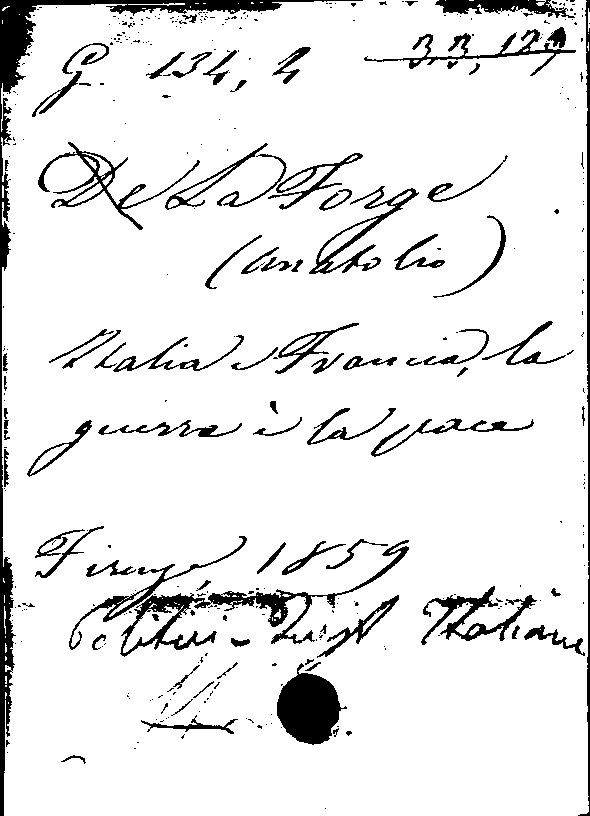 G. 134, 2 33, 129
De La Forge
(Anatolio)
Italia e Francia, la
guerra è la pace
Firenze, 1859
Politici - Quist Italiane